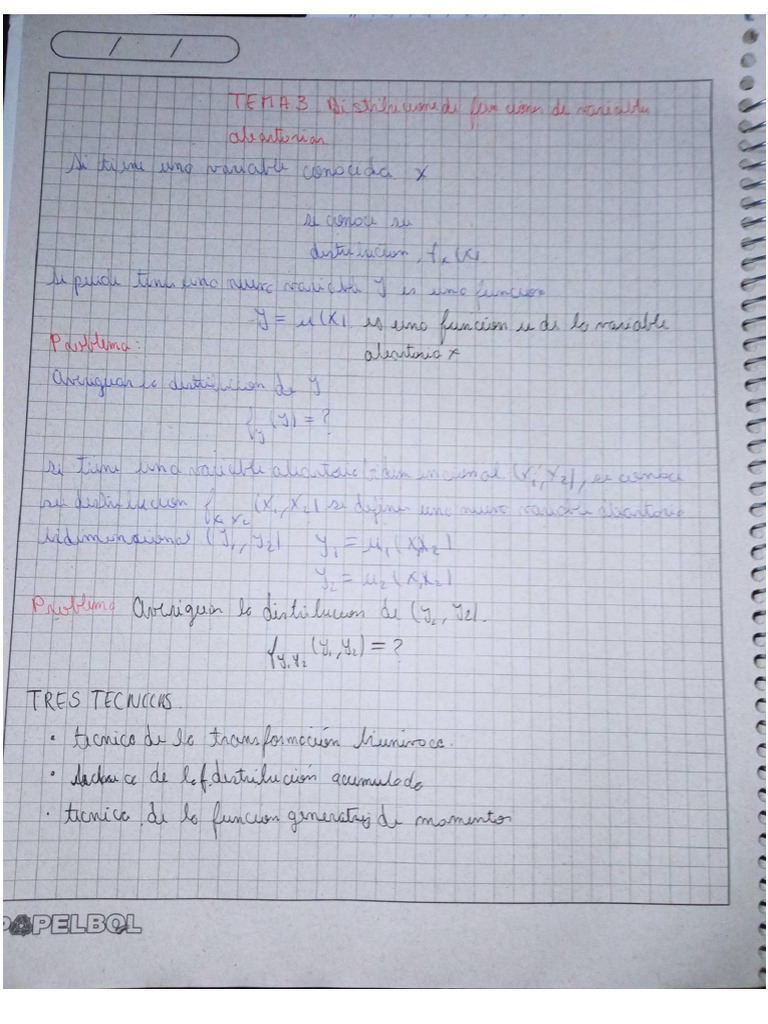 / /
TEMA 3 Distribuciones de funciones de variables
aleatorias
Si tiene una variable conocida x
se conoce su
distribucion, fx(x)
Se puede tener una nueva variable Y es una funcion
Y = u(x) es una funcion u de la variable
aleatoria x
Problema:
Averiguar la distribucion de Y
f_y(y) = ?
se tiene una variable aleatoria bidimensional (x₁, x₂), se conoce
su distribucion f_x₁x₂ (x₁, x₂) se define una nueva variable aleatoria
bidimensional (y₁, y₂) y₁ = u₁(x₁x₂)
y₂ = u₂(x₁x₂)
Problema Averiguar la distribucion de (y₂, y₂).
f_y₁y₂ (y₁, y₂) = ?
TRES TECNICAS
• tecnica de la transformación biunivoca.
• de la f. distribución acumulada
• tecnica de la funcion generatriz de momentos
PAPELBOL